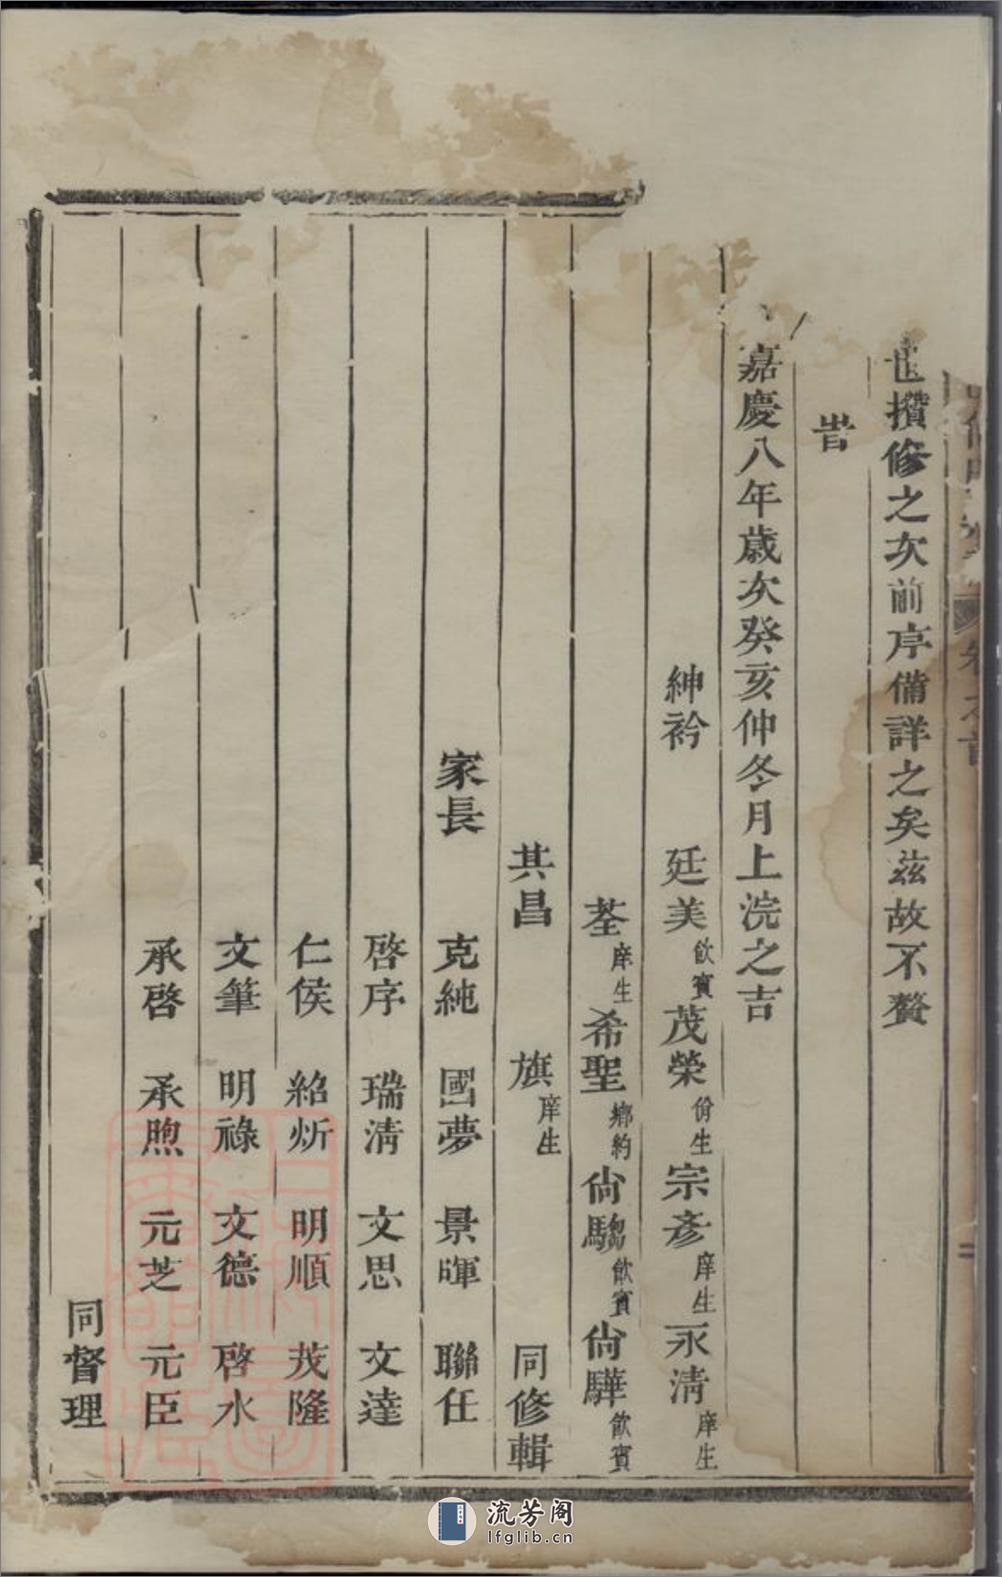 也攢修之次前序備詳之矣茲故不贅
旹
嘉慶八年歲次癸亥仲冬月上浣之吉
紳衿 廷美飲賓 茂榮佾生 宗彥庠生 永淸庠生
荃庠生 希聖鄉約 尙騶飲賓 尙驊飲賓
其昌 旗庠生 同修輯
家長 克純 國夢 景暉 聯任
啓序 瑞淸 文思 文達
仁侯 紹炘 明順 茂隆
文筆 明祿 文德 啓水
承啓 承煦 元芝 元臣
同督理
流芳阁
lfglib.cn